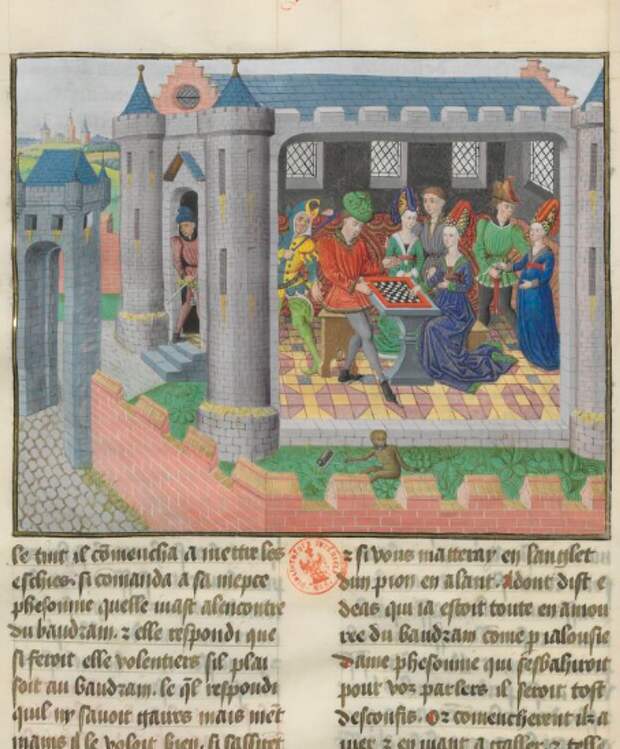 se tint il cõmencha a mettre les
eschies. si comanda a sa niepce
phesonne quelle iuast alencontre
du baudrain. z elle respondi que
si feroit elle volentiers sil plai
soit au baudrain. le ql respondi
quil ny sauoit gaires mais niet
mains il le voloit bien. si
z si vous matteray en langlet
dun pion en alant. Adont dist e
deas qui ia estoit toute en amou
ree du baudrain come p ialousie
Dame phesonne qui sesbahiroit
pour voz parlers il seroit tost
desconfis. Or comencherent ilz a
iuer z en iuant a